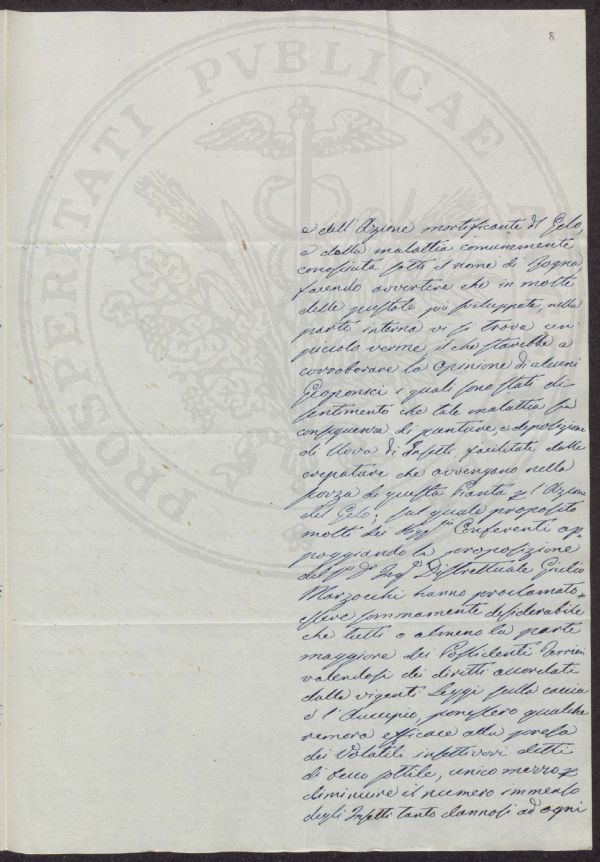 8
PROSPERITATI PVBLICAE A
e dell'Azione mortificante di Gelo,
e dalla malattia comunemente
conosciuta sotto il nome di Rogna,
facendo avvertire che in molte
delle pustole più sviluppate, nella
parte interna vi si trova un
piccolo verme, il che starebbe a
corroborare la opinione di alcuni
Geoponici i quali sono stati di
sentimento che tale malattia sia
conseguenza di punture, e deposizione
di Uova di Insetti, facilitate dalle
crepature che avvengano nella
scorza di questa Pianta p l'Azione
del Gelo; sul quale proposito
molti dei Sigg.ri Conferenti ap=
poggiando la proposizione
del Sr Dr Ingr Distrettuale Giulio
Marzocchi hanno proclamato
essere sommamente desiderabile
che tutti o almeno la parte
maggiore dei Possidenti Terrieri
valendosi dei diretti accordati
dalle vigenti Leggi sulla caccia
e l'Aucupio, ponessero qualche
remora efficace alla presa
dei Volatili insettivori detti
di becco sottile, unico mezzo p
diminuire il numero immenso
degli Insetti tanto dannosi ad ogni